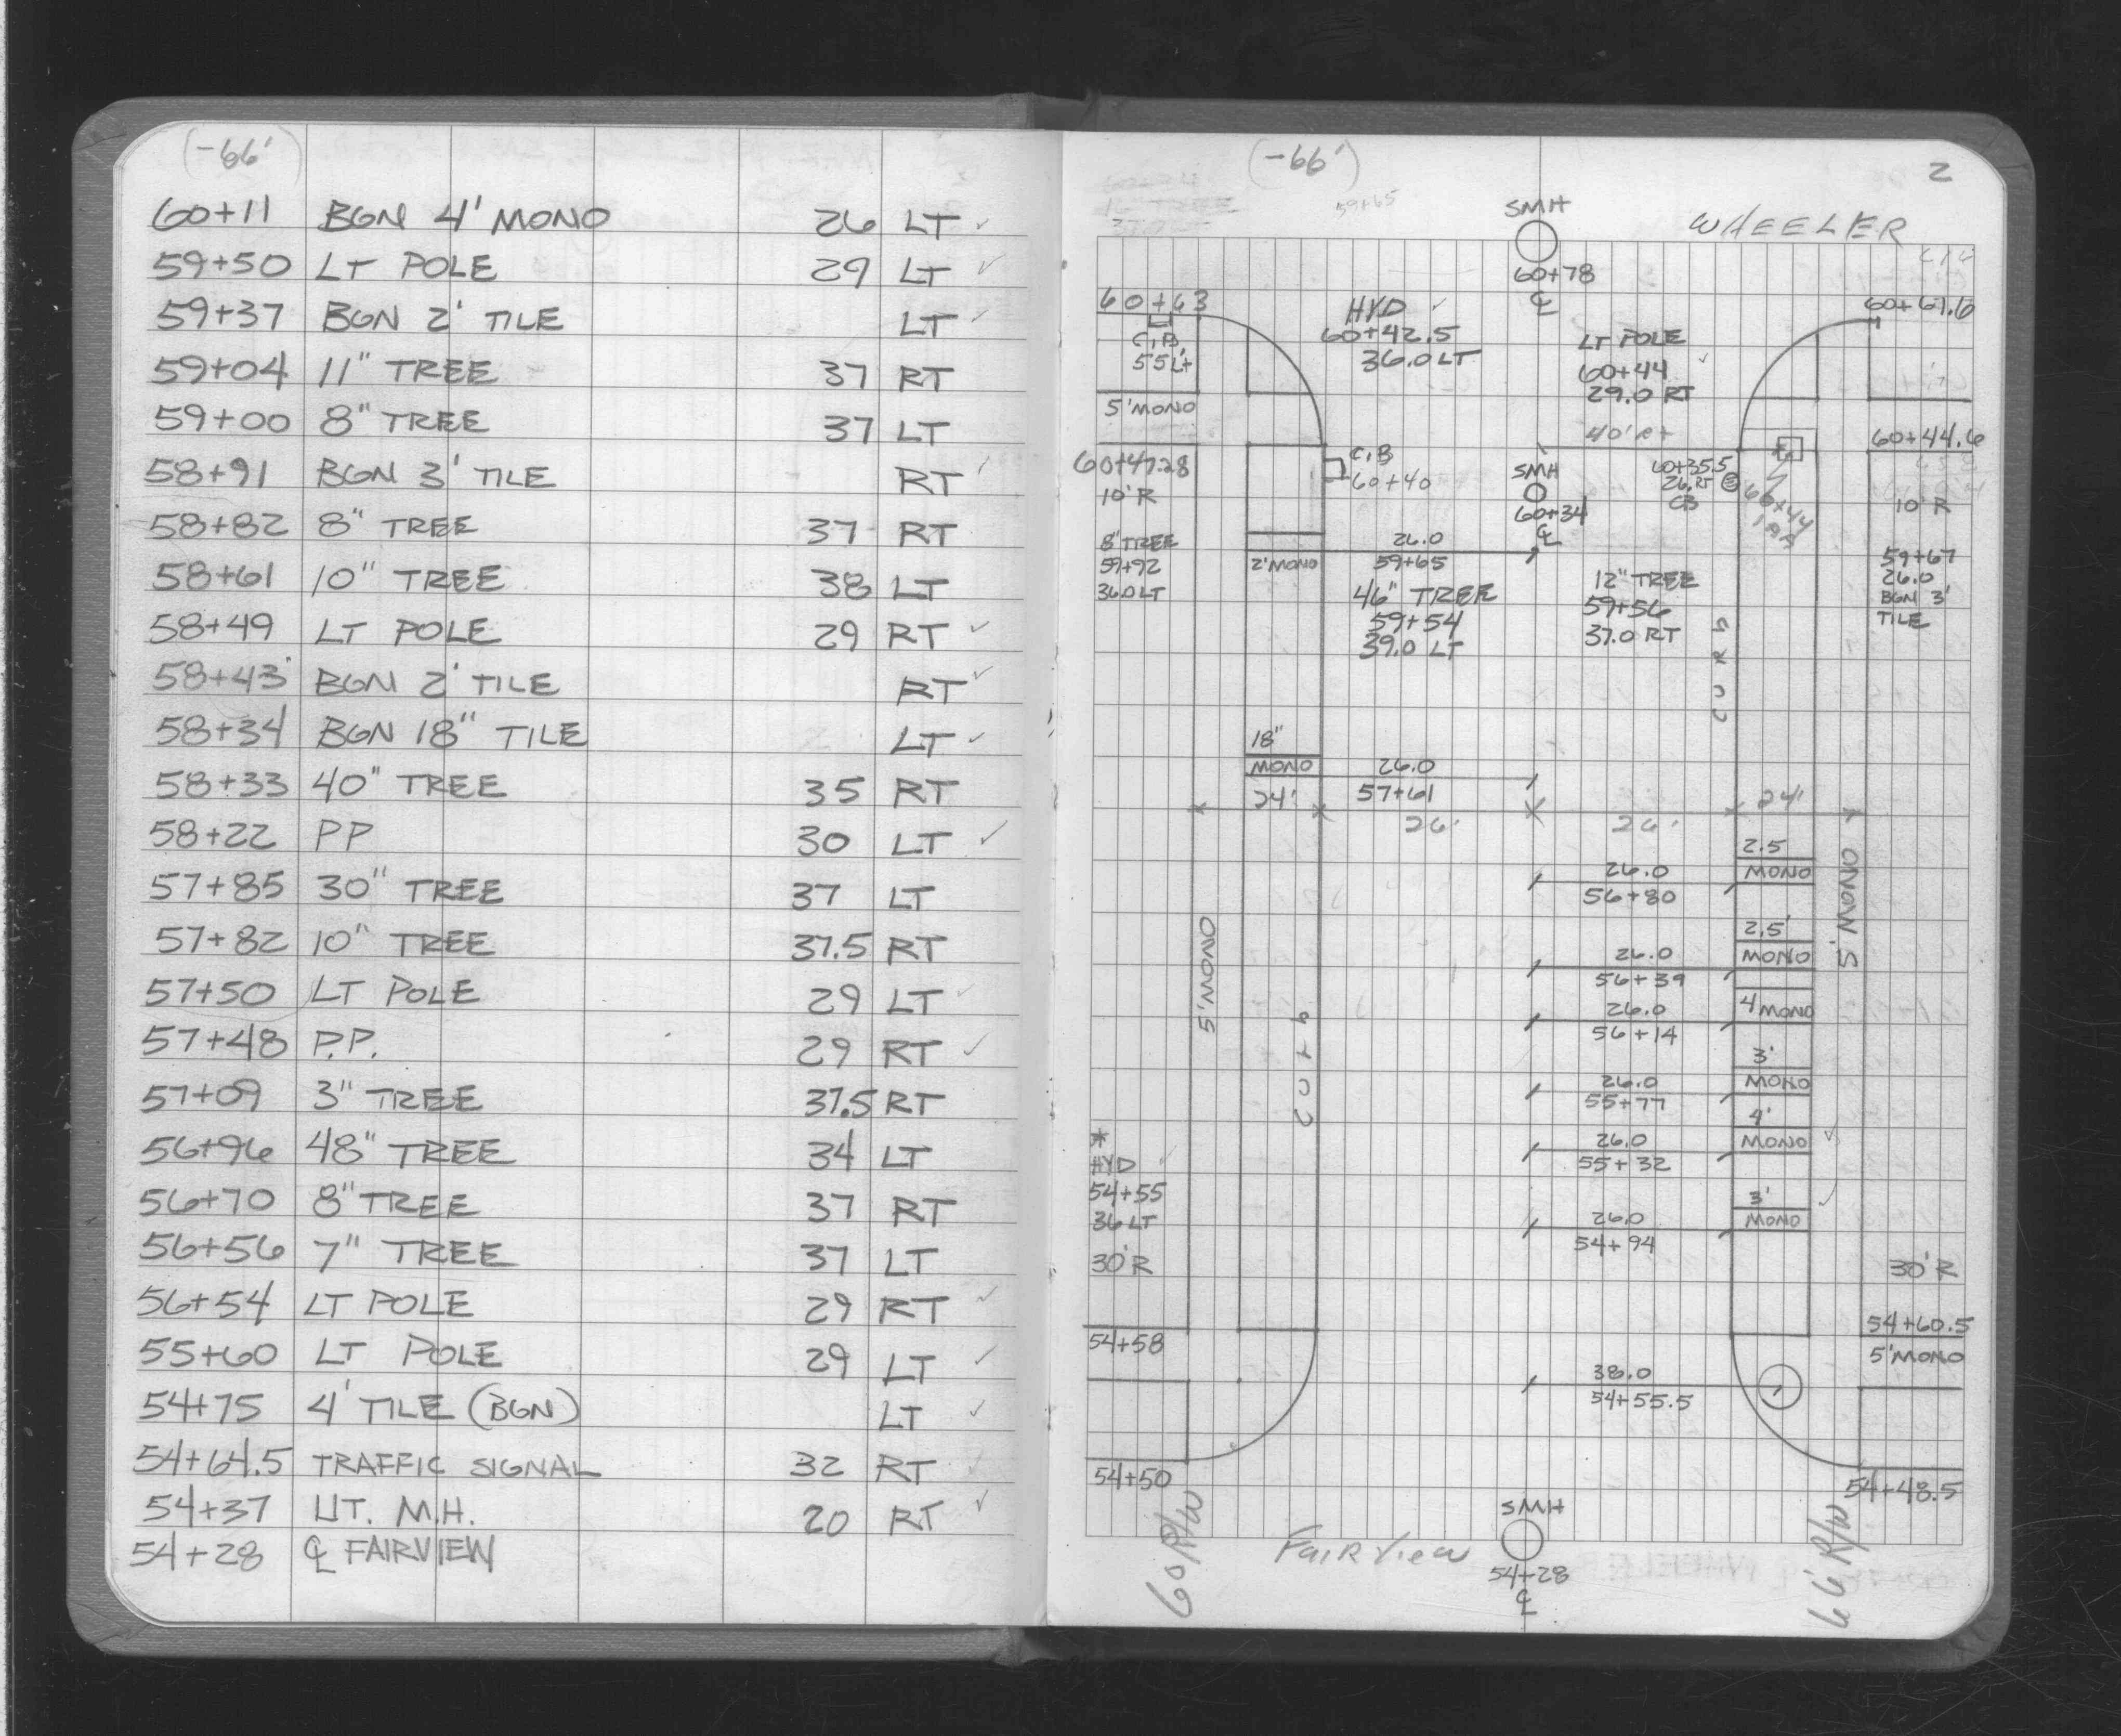 (-66')
60+11 BGN 4' MONO 26 LT ✓
59+50 LT POLE 29 LT ✓
59+37 BGN 2' TILE LT ✓
59+04 11" TREE 37 RT
59+00 8" TREE 37 LT
58+91 BGN 3' TILE RT ✓
58+82 8" TREE 37 RT
58+61 10" TREE 38 LT
58+49 LT POLE 29 RT ✓
58+43 BGN 2' TILE RT ✓
58+34 BGN 18" TILE LT ✓
58+33 40" TREE 35 RT
58+22 PP 30 LT ✓
57+85 30" TREE 37 LT
57+82 10" TREE 37.5 RT
57+50 LT POLE 29 LT ✓
57+48 P.P. 29 RT ✓
57+09 3" TREE 37.5 RT
56+96 48" TREE 34 LT
56+70 8" TREE 37 RT
56+56 7" TREE 37 LT
56+54 LT POLE 29 RT ✓
55+60 LT POLE 29 LT ✓
54+75 4' TILE (BGN) LT ✓
54+64.5 TRAFFIC SIGNAL 32 RT ✓
54+37 UT. M.H. 20 RT ✓
54+28 ℄ FAIRVIEW
(-66')
2
59+65
SMH
WHEELER
60+78
℄
60+63
C.B.
55 Lt
5' MONO
60+47.28
10' R
8" TREE
59+92
36.0 LT
HYD ✓
60+42.5
36.0 LT
LT POLE
60+44 ✓
29.0 RT
60+61.6
60+44.6
10' R
40' Rt
C.B
60+40
SMH
60+34
℄
60+35.5
26. RT
CB
60+44
59+67
26.0
BGN 3'
TILE
2' MONO
26.0
59+65
46" TREE
59+54
39.0 LT
12" TREE
59+56
37.0 RT
CURB
18"
MONO
26.0
57+61
24'
26'
26'
24'
2.5
MONO
26.0
56+80
2.5'
MONO
26.0
56+39
4 MONO
26.0
56+14
3'
MONO
26.0
55+77
4'
MONO ✓
26.0
55+32
3' ✓
MONO
26.0
54+94
5' MONO
5' MONO
*
HYD ✓
54+55
36 LT
30' R
54+58
54+50
30' R
54+60.5
5' MONO
38.0
54+55.5
54+48.5
60 R/W
FAIRVIEW
SMH
54+28
℄
66' R/W